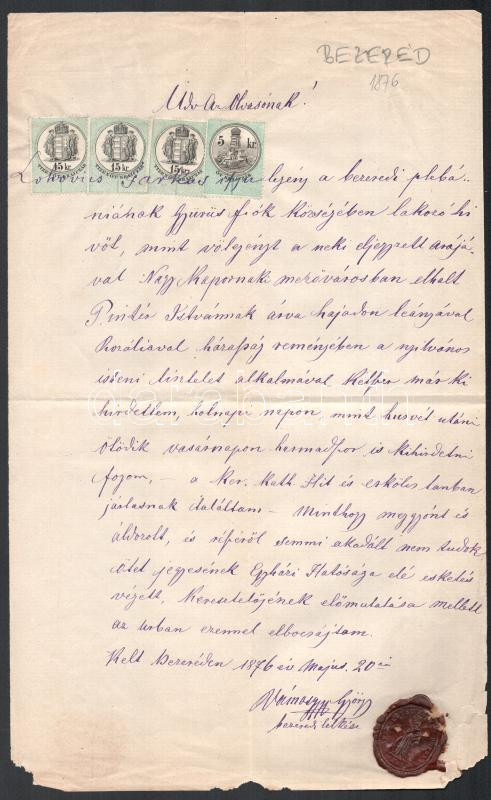 BEZERÉD
1876
Üdv az Olvasónak!
15 kr. 15 kr. 15 kr. 5 kr.
Lokovics Farkas ifjú legény a bezerédi plébá-
niának Gyürüs fiók községében lakozó hi
vöt, mint völegényt a neki eljegyzett arájá-
val Nagy Kapornaki mezővárosban elhalt
Pintér Istvánnak árva hajadon leányával
Rozáliával házasság reményében a nyilvános
isteni tisztelet alkalmával kétszer már ki
hirdettem, holnapi napon, mint husvét utáni
ötödik vasárnapon harmadszor is kihirdetni
fogom, – a Ker. Kath. Hit és erkölcs tanban
jártasnak találtam – Minthogy meggyónt és
áldozott, és részéről semmi akadált nem tudok
őtet jegyesének Egyházi Hatósága elé esketés
végett, keresztelőjének előmutatása mellett
az urban ezennel elbocsájtom.
Kelt Bezeréden 1876 év Május. 20án
György
bezerédi lelkész